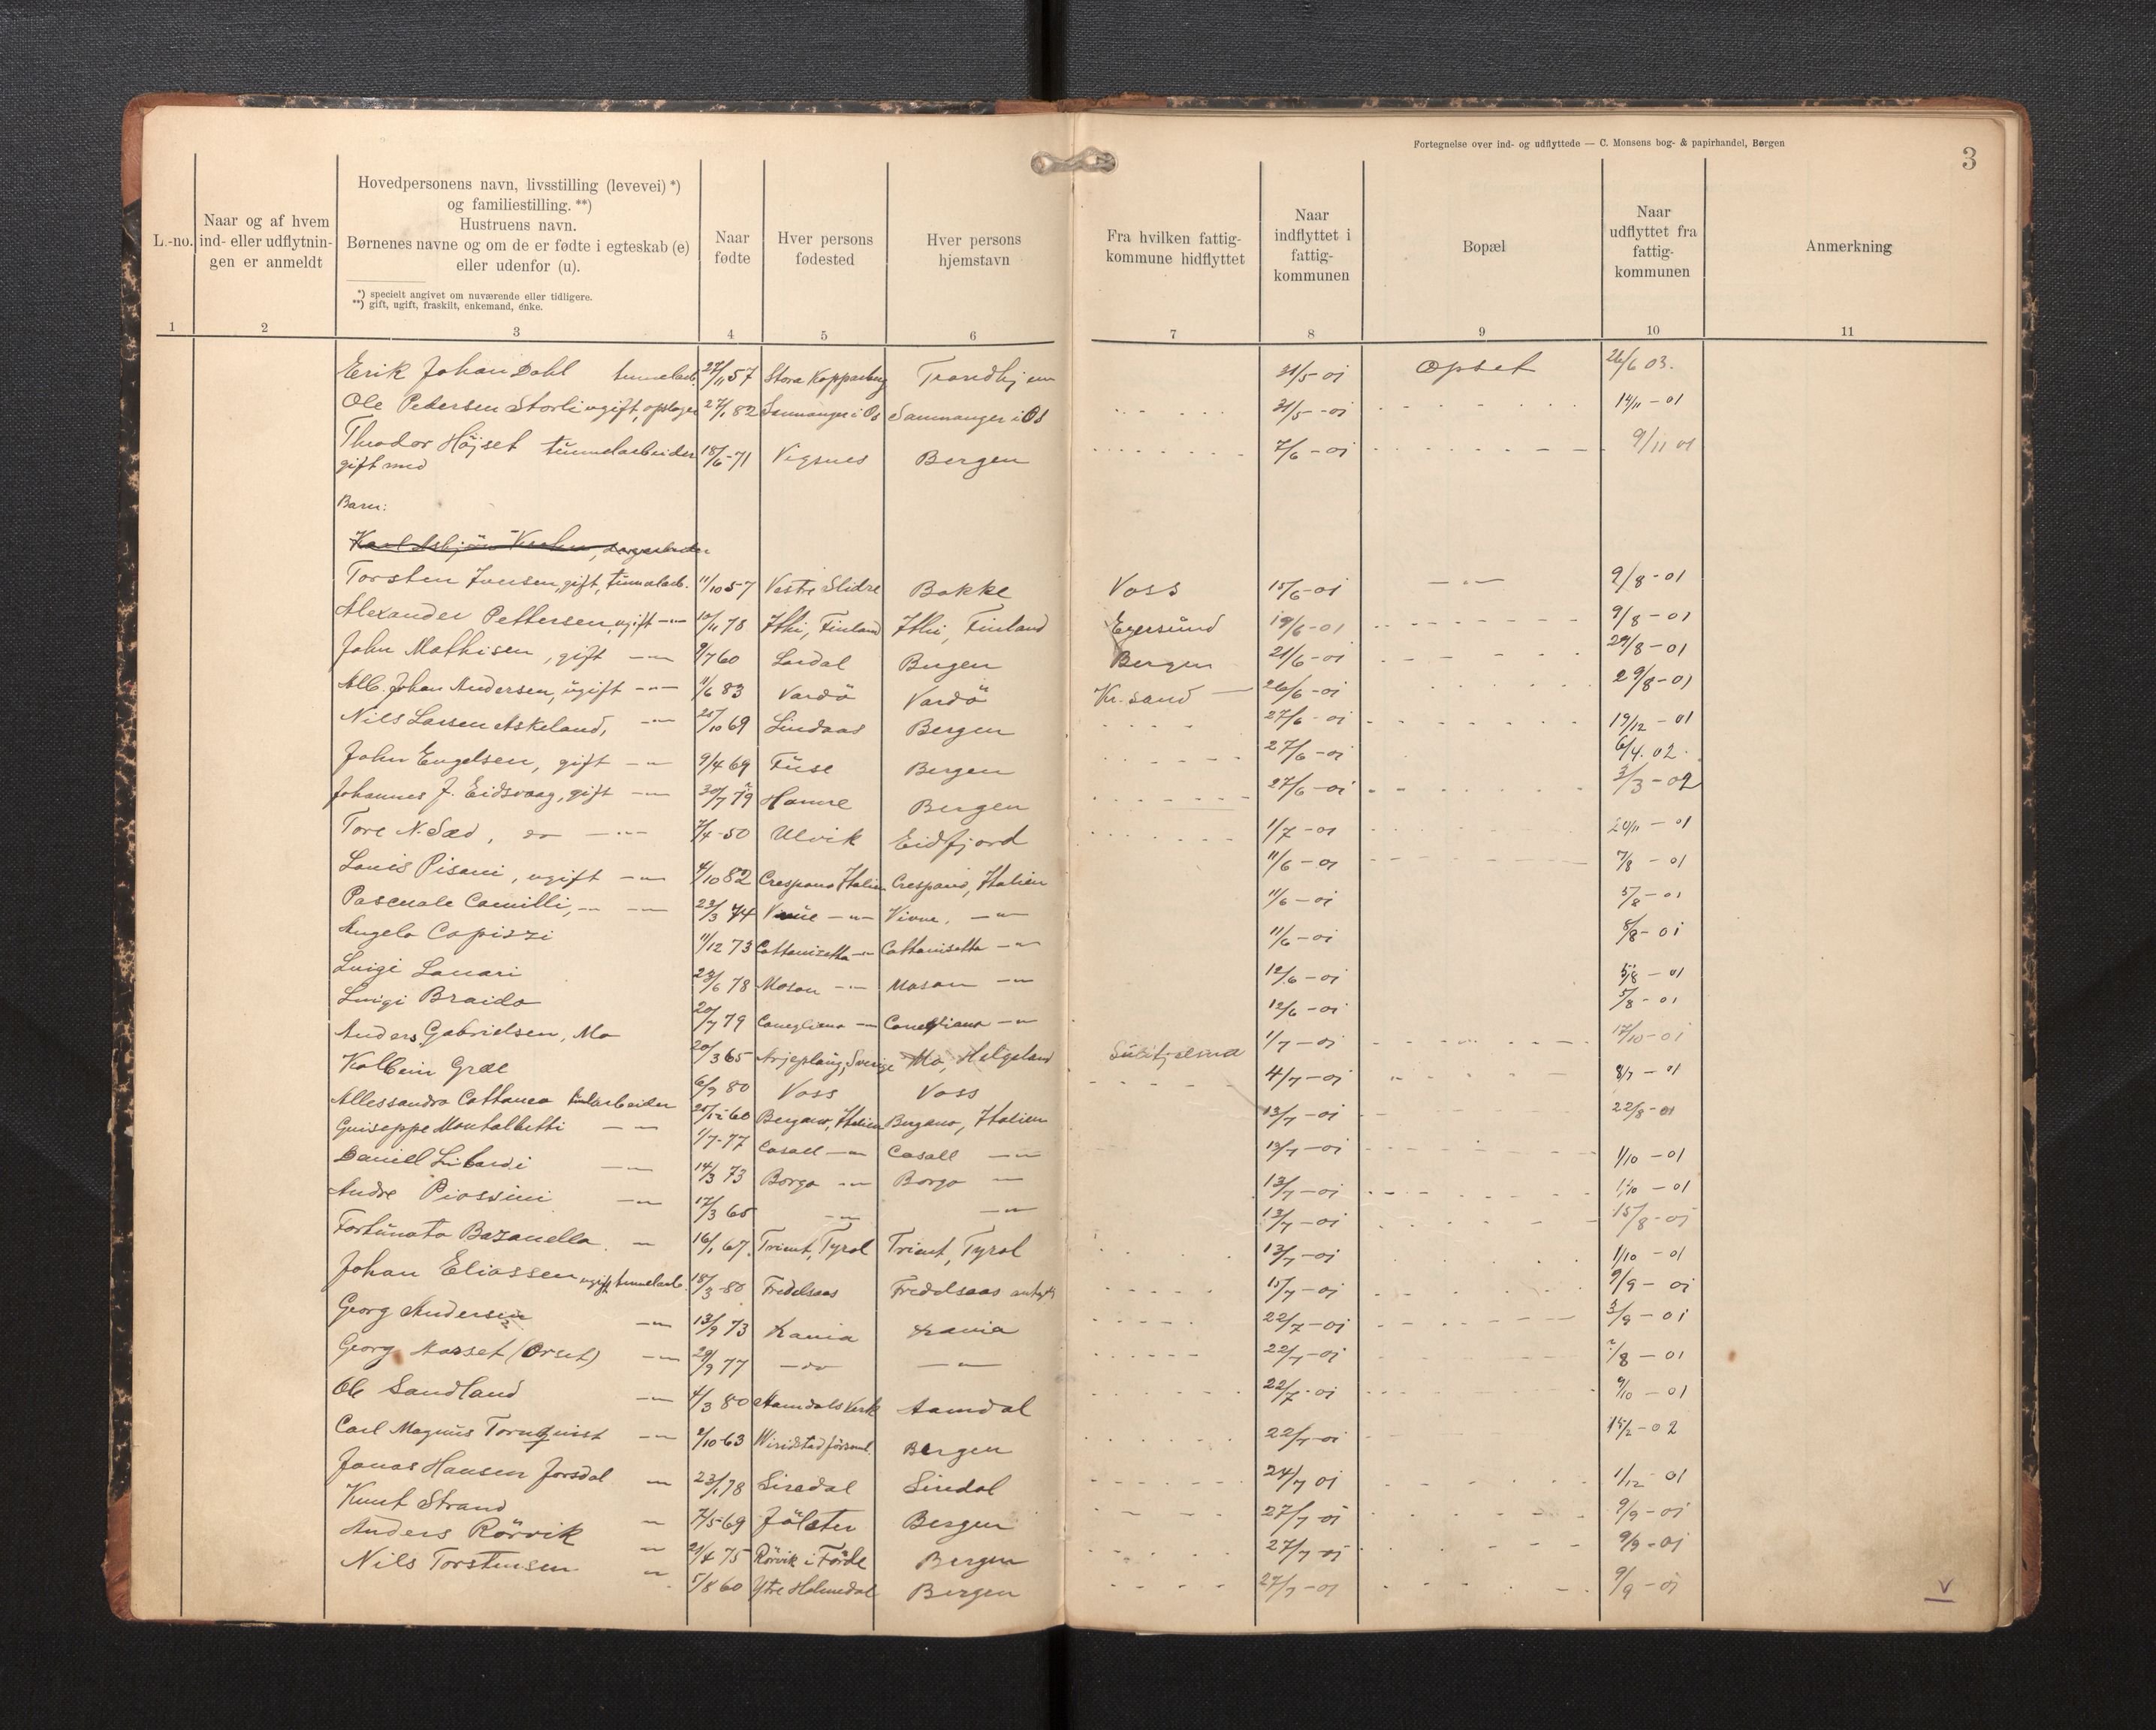 Fortegnelse over ind- og udflyttede — C. Monsens bog- & papirhandel, Bergen
3
L.-no.
Naar og af hvem ind- eller udflytnin- gen er anmeldt
Hovedpersonens navn, livsstilling (levevei) *)
og familiestilling. **)
Hustruens navn.
Børnenes navne og om de er fødte i egteskab (e)
eller udenfor (u).
*) specielt angivet om nuværende eller tidligere.
**) gift, ugift, fraskilt, enkemand, enke.
Naar fødte
Hver persons fødested
Hver persons hjemstavn
Fra hvilken fattig- kommune hidflyttet
Naar indflyttet i fattig- kommunen
Bopæl
Naar udflyttet fra fattig- kommunen
Anmerkning
1 2 3 4 5 6 7 8 9 10 11
Erik Johan Dahl tunnelarb. 27/11 57 Stora Kopparberg Trondhjem 31/5 - 01 Opset 26/6 03.
Ole Petersen Storli ugift, opslager 27/1 82 Samnanger i Os Samnanger i Os 31/5 - 01 14/11 - 01
Theodor Höjset tunnelarbeider 18/6 - 71 Vigsnes Bergen 7/6 - 01 9/11 01
gift med
Barn:
Torsten Iversen, gift, tunnelarb. 11/10 57 Vestre Slidre Bakke Voss 15/6 - 01 — " — 9/8 - 01
Alexander Pettersen, ugift — " — 12/11 78 Ithi, Finland Ithi, Finland Egersund 19/6 - 01 9/8 - 01
John Mathisen, gift — " — 9/7 60 Lardal Bergen Bergen 21/6 - 01 29/8 - 01
Alb. Johan Andersen, ugift — " — 11/6 83 Vardö Vardö Kr. sand 26/6 - 01 29/8 - 01
Nils Larsen Askeland, — " — 25/10 69 Lindaas Bergen 27/6 - 01 19/12 - 01
John Engelsen, gift — " — 9/4 69 Fuse Bergen 27/6 - 01 6/4. 02.
Johannes J. Eidsvaag, gift — " — 30/7 79 Hamre Bergen 27/6 - 01 3/3 - 02
Tore N. Sæd, do — " — 7/4 - 50 Ulvik Eidfjord 1/7 - 01 20/11 - 01
Louis Pisani, ugift — " — 4/10 82 Crespano Italien Crespano, Italien 11/6 - 01 7/8 - 01
Pascuale Camilli, — " — 23/3 74 — " — — " — 11/6 - 01 5/8 - 01
Angelo Capizzi 11/12 73 Cattanisetta — " — Cattanisetta — " — 11/6 - 01 8/8 - 01
Luigi Lanari 28/6 78 Mason — " — Mason — " — 12/6 - 01 5/8 - 01
Luigi Braido 20/7 79 Conegliano — " — Conegliano — " — 12/6 - 01 5/8 - 01
Anders Gabrielsen, Mo 20/3 65 Arjeplaug, Sverige Mo, Helgeland Sulitjelma 1/7 - 01 17/10 - 01
Kolbein Græe 6/9 80 Voss Voss 4/7 - 01 8/7 - 01
Allessandro Cattaneo tunlarbeider 25/12 60 Bergamo, Italien Bergamo, Italien 13/7 - 01 22/8 - 01
Guiseppe Montalbetti — " — 1/7 - 77 Casall — " — Casall — " — 13/7 - 01 1/10 - 01
Daniell Libardi — " — 14/3 73 Borgo — " — Borgo — " — 13/7 - 01 1/10 - 01
Andre Piassini — " — 17/3 65 — " — — " — 13/7 - 01 15/8 - 01
Fortunato Bazanella — " — 16/1 67. Trient, Tyrol Trient, Tyrol 13/7 - 01 1/10 - 01
Johan Eliassen ugift tunnelarb. 18/3 - 80 Fredelsaas Fredelsaas 15/7 - 01 9/9 - 01
Georg Andersen — " — 13/9 73 22/7 - 01 3/9 - 01
Georg Aasset (Orset) — " — 29/9 77 — do — " — 22/7 - 01 /8 - 01
Ole Sandland — " — 4/3 80 Aamdals Verk Aamdal 22/7 - 01 9/10 - 01
Carl Magnus Tornquist — " — /10 - 63 Bergen 22/7 - 01 /2 - 02
Jonas Hansen Jorsdal — " — 23/1 78 Siredal Siredal 24/7 01 1/12 - 01
Knut Strand — " — 7/5 - 69 Jölster Bergen 27/7 - 01 9/9 - 01
Anders Rörvik — " — 21/4 75 Rörvik i Förde Bergen 27/7 - 01 9/9 - 01
Nils Torstensen — " — 5/8 60 Ytre Holmedal Bergen 27/7 - 01 9/9 - 01
V